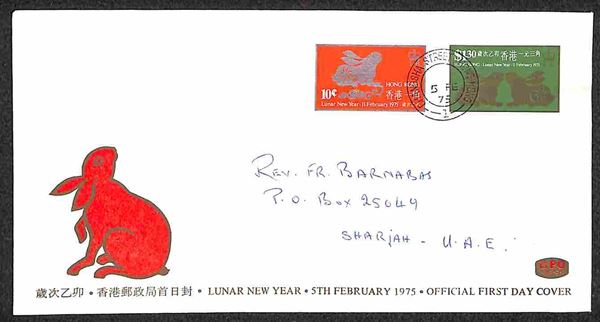 10¢
HONG KONG
香港 一角
Lunar New Year · 11 February 1975
$1.30 歲次乙卯 香港 一元三角
HONG KONG Lunar New Year · 11 February 1975
5 FE
75
1
Rev. Fr. Barnabas
P.O. Box 25049
Sharjah - U.A.E.
GPO
歲次乙卯 • 香港郵政局首日封 • LUNAR NEW YEAR • 5TH FEBRUARY 1975 • OFFICIAL FIRST DAY COVER